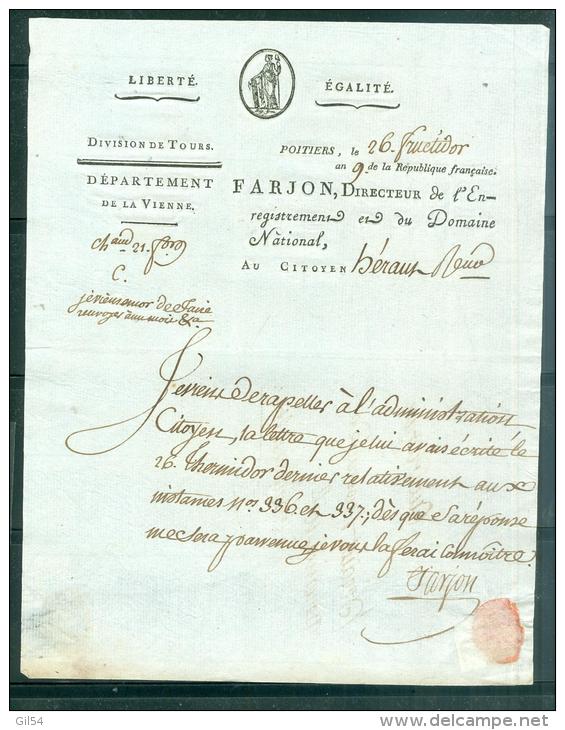 LIBERTÉ.
ÉGALITÉ.
DIVISION DE TOURS.
DÉPARTEMENT
DE LA VIENNE.
POITIERS, le 26. fructidor
an 9 de la République française.
FARJON, DIRECTEUR de l'En-
registrement et du Domaine
National,
AU CITOYEN héraut
C.
de faire
Je viens de rapeller à l'administration
Citoyen, la lettre que je lui avais écrite le
26. thermidor dernier relativement aux
instances nos. 336. et 337.; dès que sa réponse
me sera parvenue je vous la ferai connoître.
Farjon
Gil54
www.delcampe.net